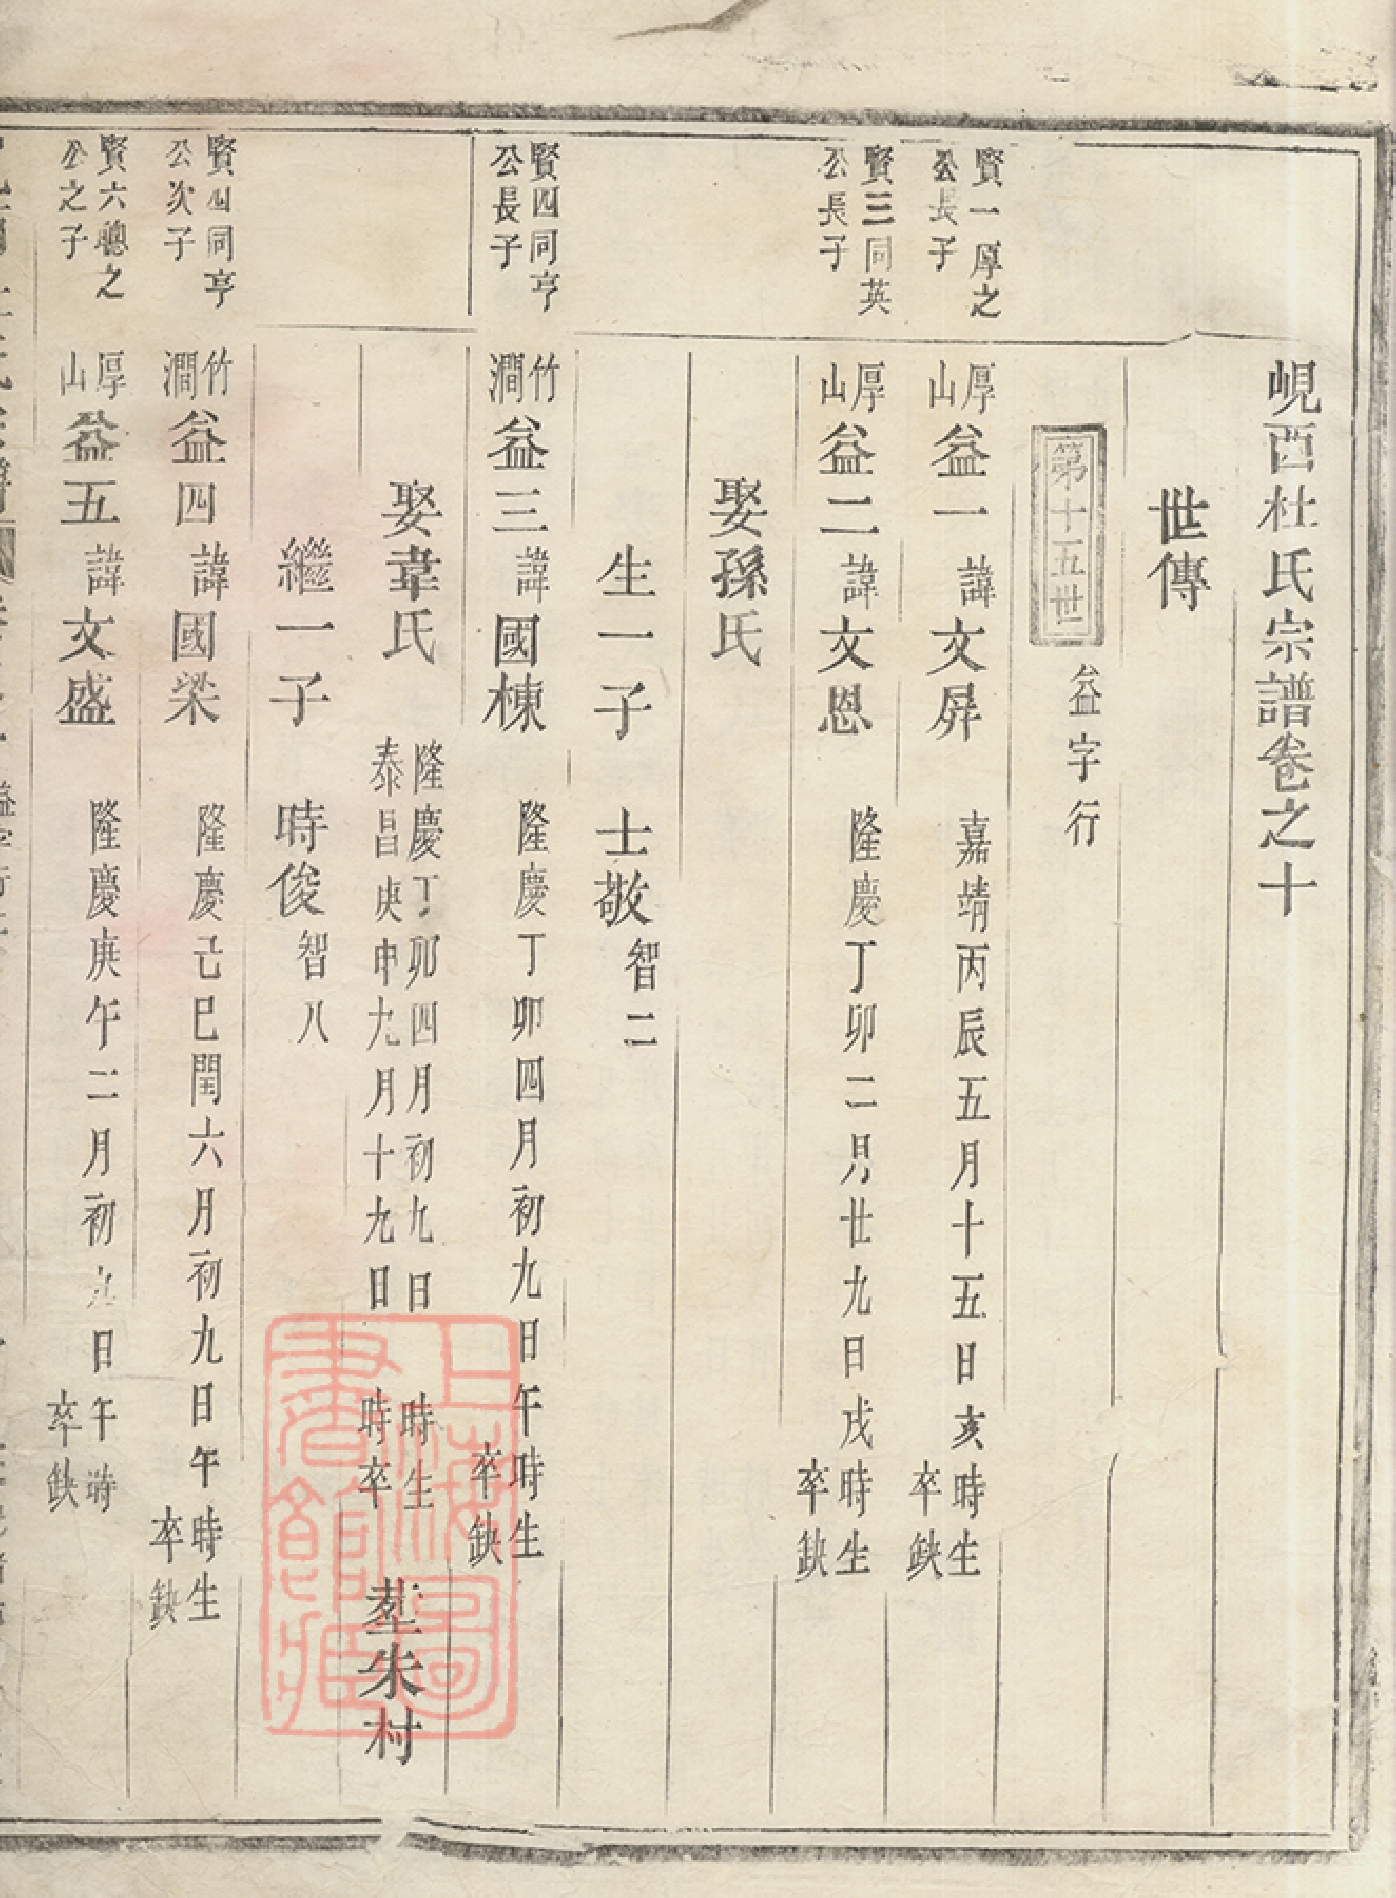 峴西杜氏宗譜卷之十
世傳
第十五世 益字行
賢一厚之
公長子
厚山 益一 諱文屏 嘉靖丙辰五月十五日亥時生 卒缺
賢三同英
公長子
厚山 益二 諱文恩 隆慶丁卯二月廿九日戌時生 卒缺
娶孫氏
生一子 士敬 智二
賢四同亨
公長子
竹澗 益三 諱國棟 隆慶丁卯四月初九日午時生 卒缺
娶韋氏 隆慶丁卯四月初九日 時生
泰昌庚申九月十九日 時卒 塟朱村
繼一子 時俊 智八
賢四同亨
公次子
竹澗 益四 諱國梁 隆慶己巳閏六月初九日午時生 卒缺
賢六聰之
公之子
厚山 益五 諱文盛 隆慶庚午二月初九日午時 卒缺
上海圖書館藏